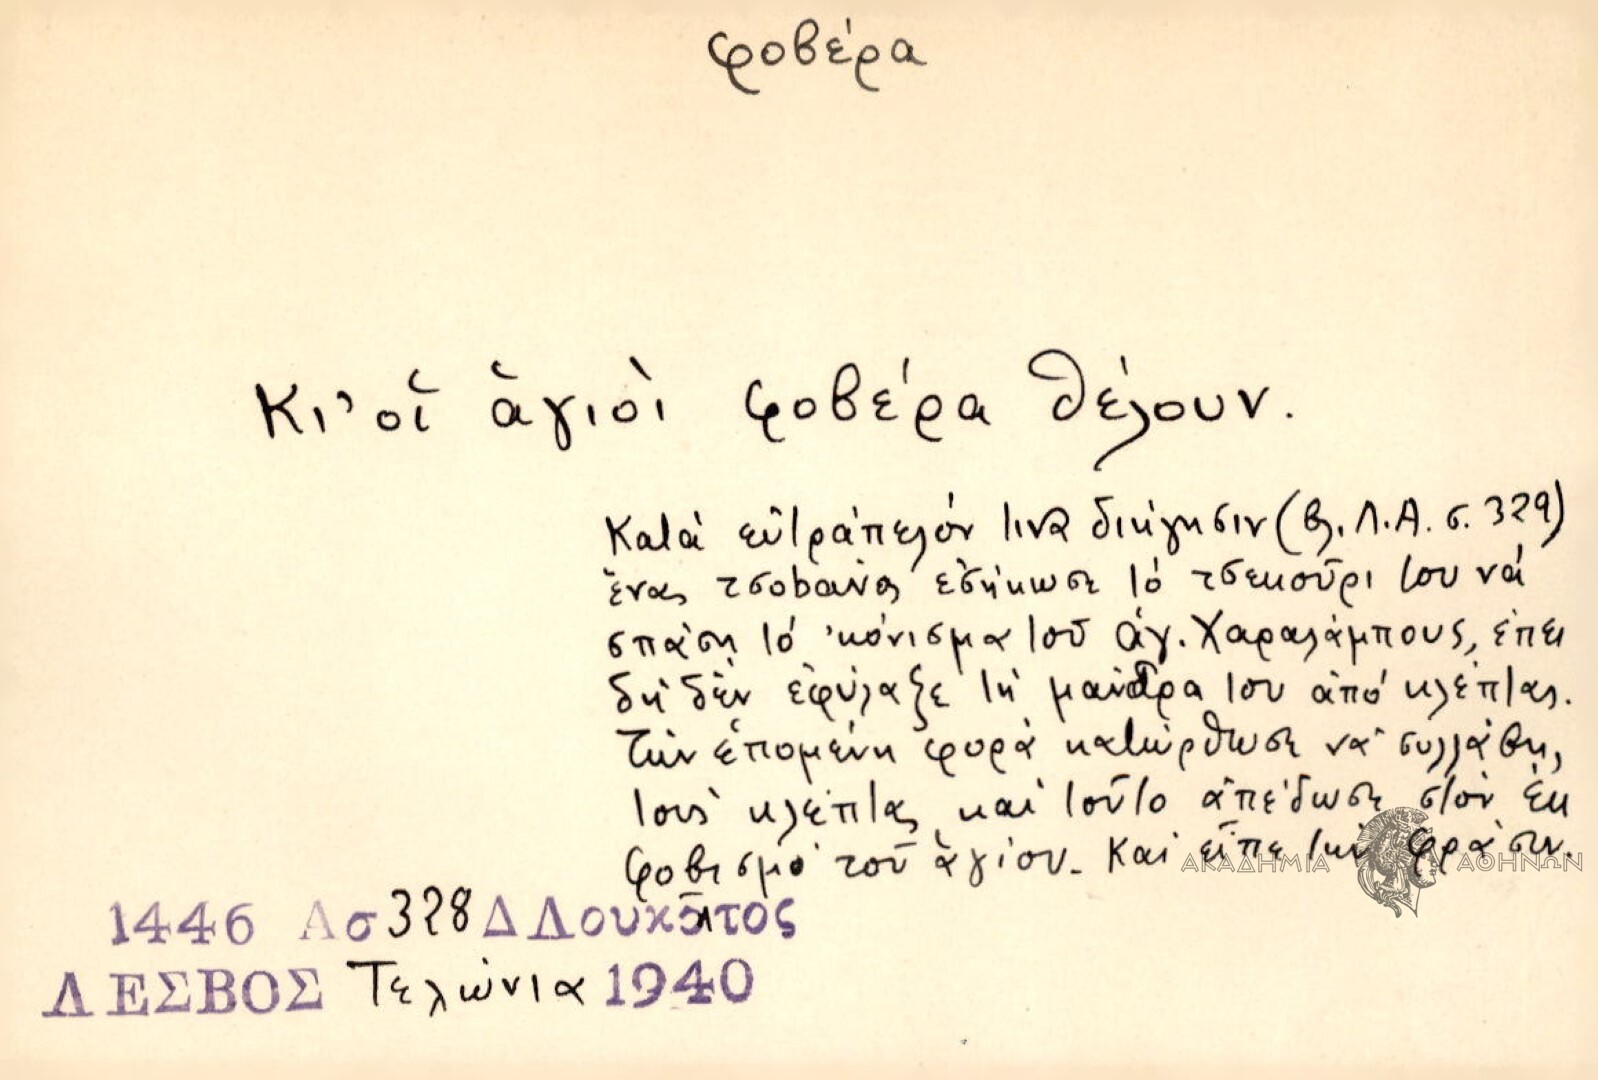 φοβέρα
Κι' οἱ ἅγιοι φοβέρα θέλουν.
Κατά εὐτράπελόν τινα διήγησιν (βλ. Λ.Α. σ. 329)
ἕνας τσοbάνος ἐσήκωσε τό τσεκοῦρι του νά
σπάσῃ τό 'κόνισμα τοῦ ἁγ. Χαραλάμπους, ἐπει
δή δέν ἐφύλαξε τή μάνdρα του ἀπό κλέπτας.
Τήν ἑπομένη φορά κατώρθωσε νά συλλάβῃ,
τούς κλέπτας καί τοῦτο ἀπέδωσε στόν ἐκ
φοβισμό τοῦ ἁγίου. Καί εἶπε τήν φράσιν.
ΑΚΑΔΗΜΙΑ ΑΘΗΝΩΝ
1446 Α σ 328 Δ Λουκᾶτος
ΛΕΣΒΟΣ Τελώνια 1940